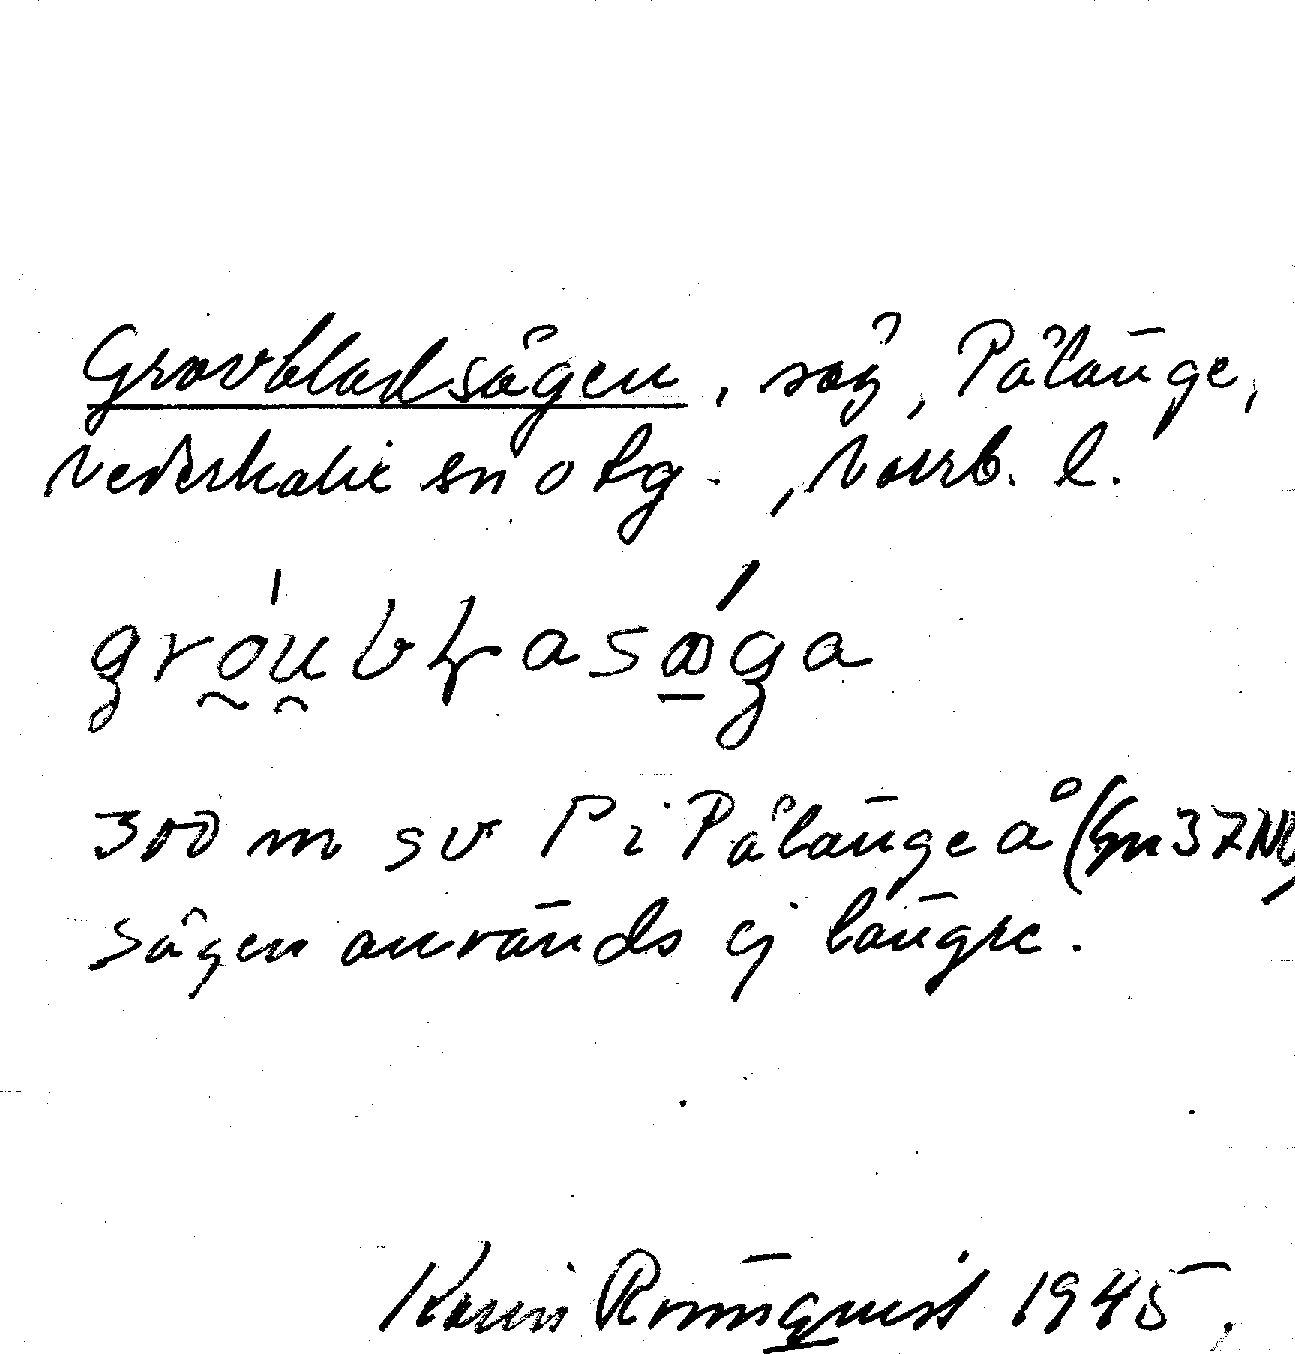 Grovbladsågen, såg, Pålänge,
Nederkalix sn o tg., Norrb. l.
300 m sv P i Pålänge å (Gn 37 NV
Sågen används ej längre.
Karin Rönnquist 1945.